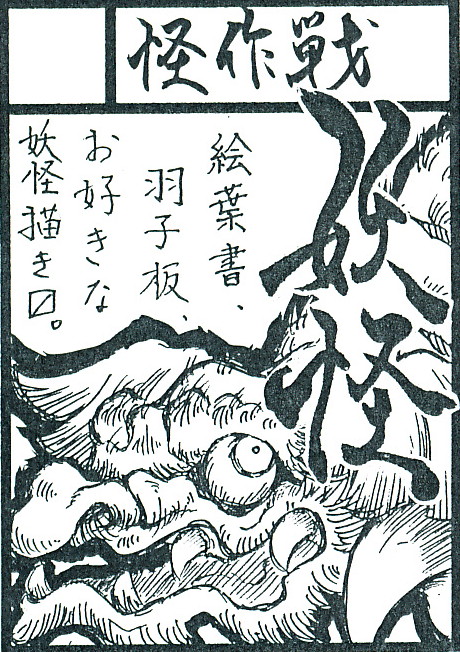 怪作戦
妖怪
絵葉書、
羽子板、
お好きな
妖怪描き〼。